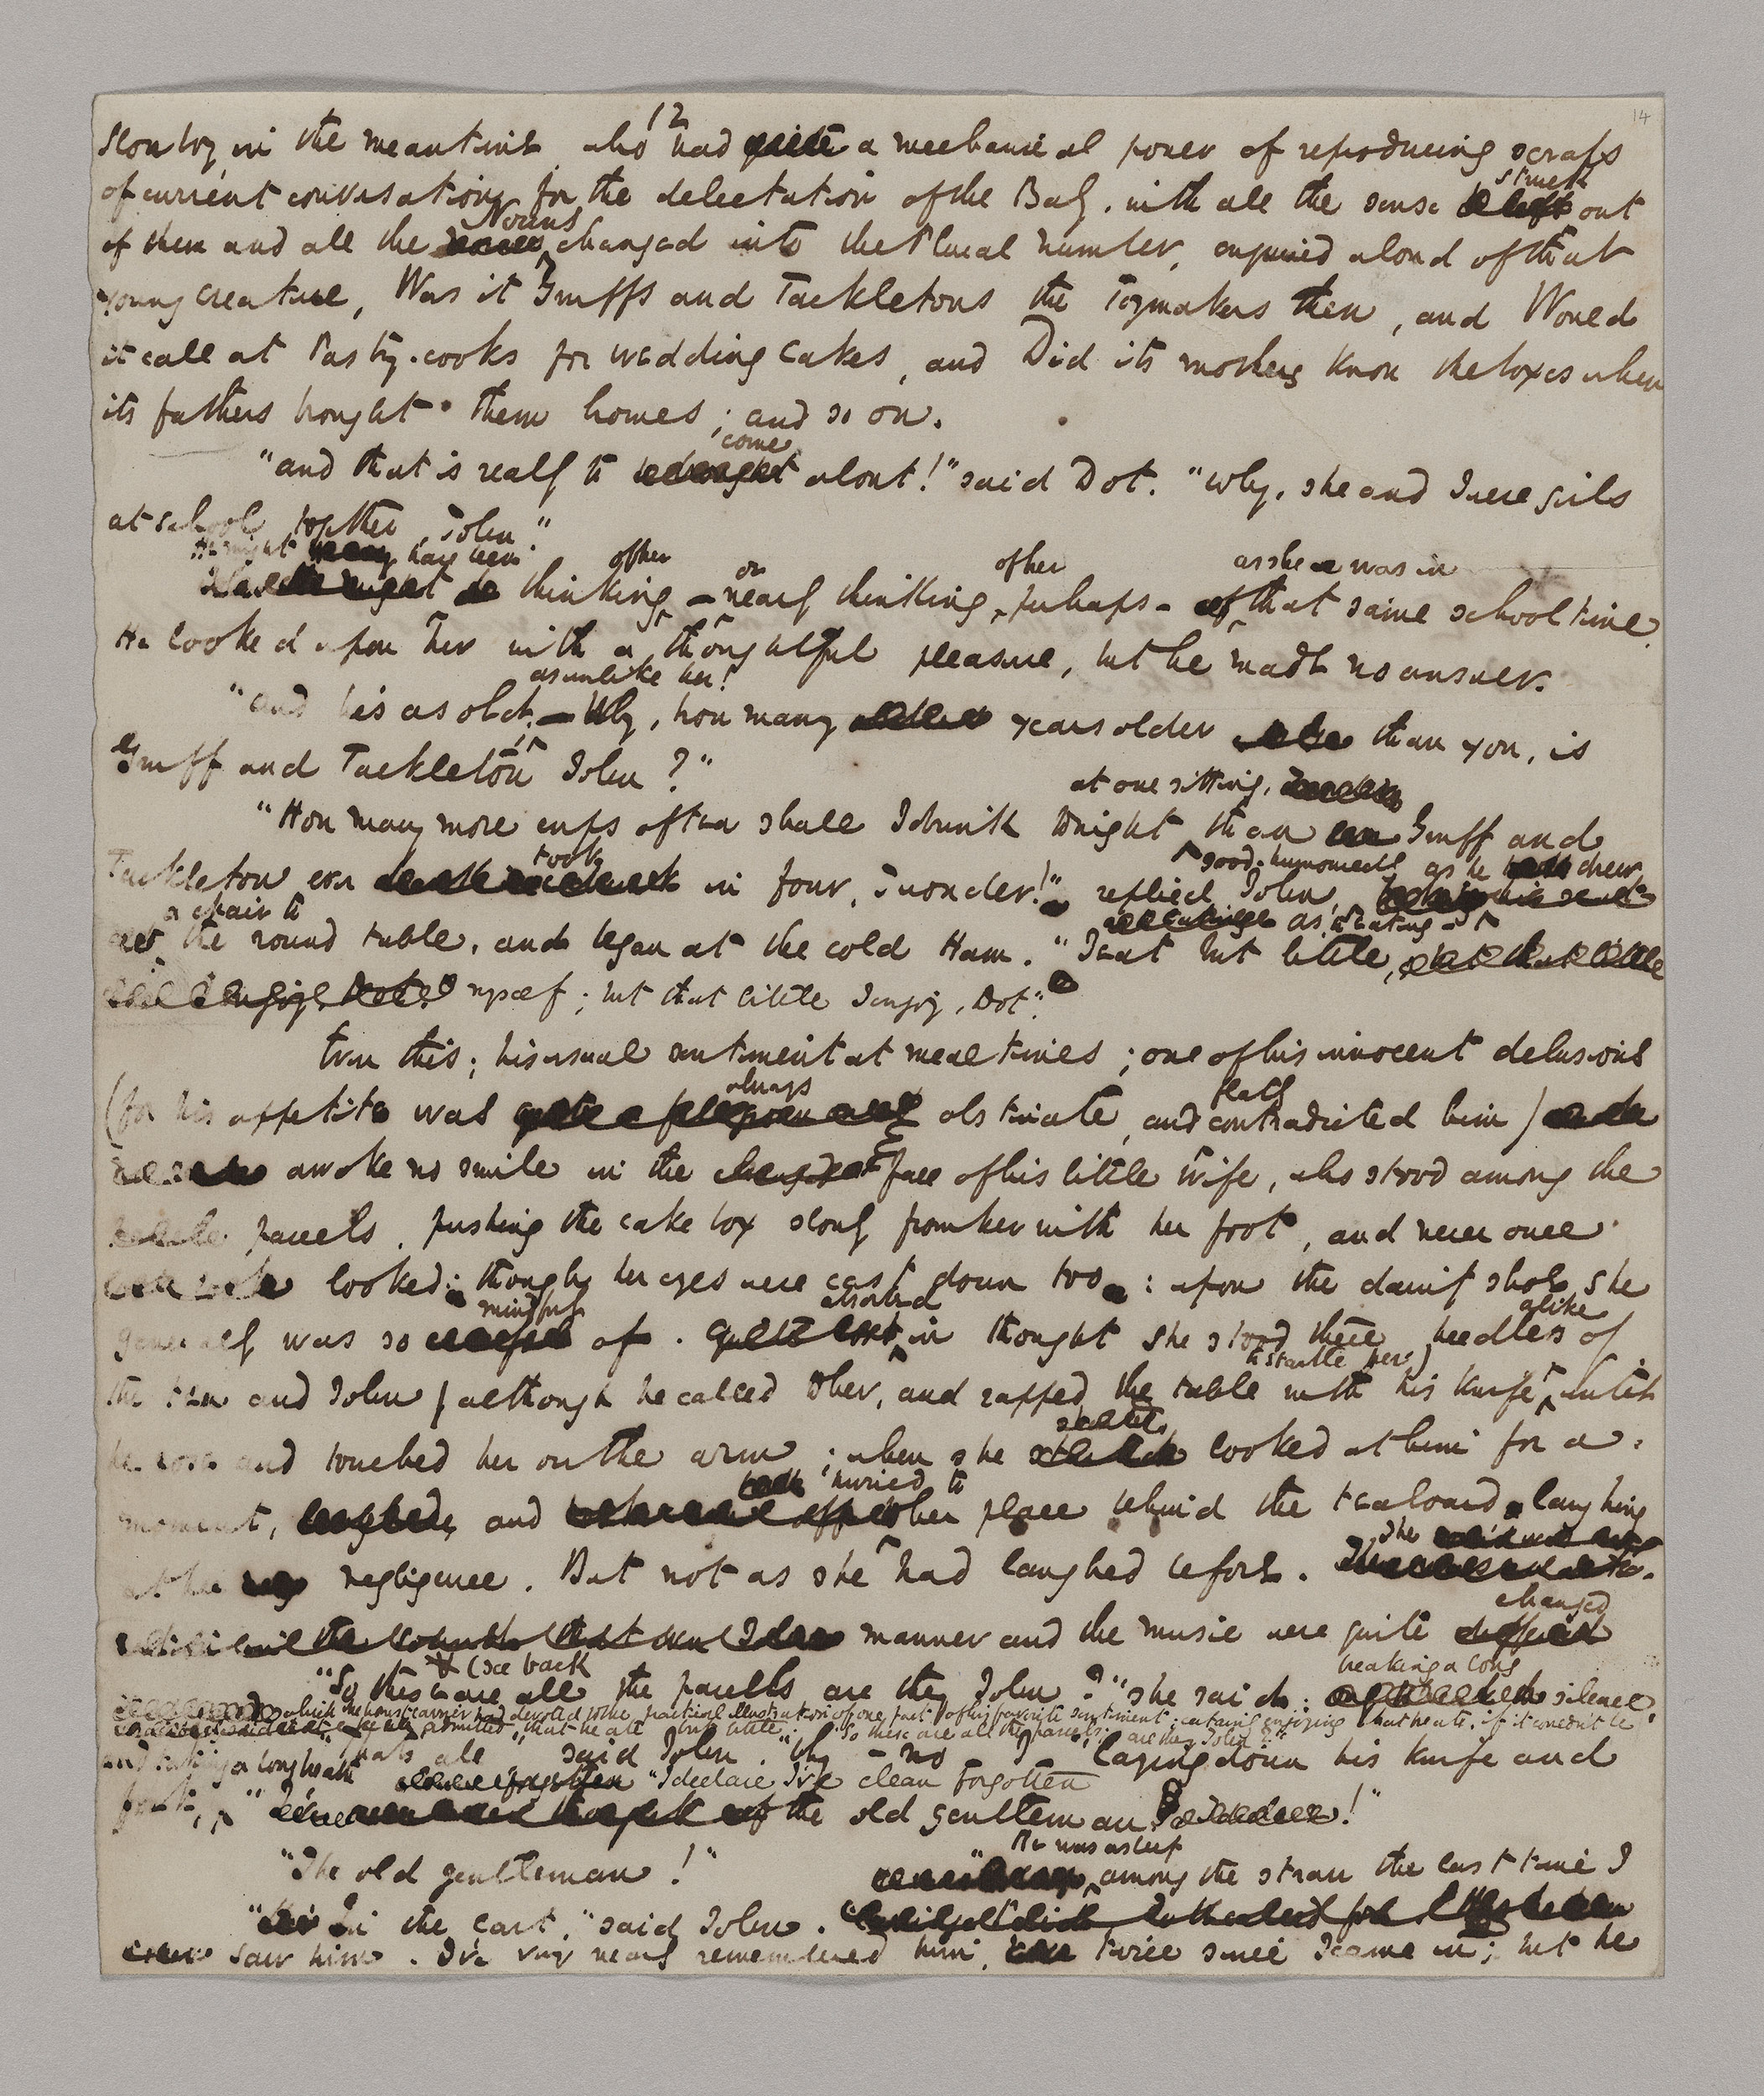 12
14
Slowboy in the meantime, who had quite a mechanical power of reproducing scraps
struck
of current conversation for the delectation of the Baby, with all the sense out
Nouns
of them and all the changed into the Plural number, enquired aloud of that
young creature, Was it Gruffs and Tackletons the Toymakers then, and Would
it call at Pastry-cooks for wedding cakes, and Did its mothers know the boxes when
its fathers brought them homes; and so on.
come
"and that is really to about!" said Dot. "Why, she and I were girls
at school together, John."
He might have been of her or of her as she was in
thinking nearly thinking, perhaps - of that same school time
He looked upon her with a thoughtful pleasure, but he made no answer.
as unlike her!
"and he's as old, - Why, how many years older than you, is
Gruff and Tackleton John?"
at one sitting,
"How many more cups of tea shall I drink tonight than Gruff and
took good-humouredly, as he drew
Tackleton ever in four, I wonder!" replied John,
a chair to as to eating
the round table, and began at the cold Ham. "I eat but little, eat that little
enjoy Dot" myself; but that little I enjoy, Dot."
Even this; his usual sentiment at meal times; one of his innocent delusions
always flatly
(for his appetite was obstinate, and contradicted him)
awoke no smile in the face of his little wife, who stood among the
parcels, pushing the cake box slowly from her with her foot, and never once
looked: though her eyes were cast down too: upon the dainty shoe she
mindful absorbed alike
generally was so of. in thought she stood there, heedless of
to startle her)
the tea and John (although he called to her, and rapped the table with his knife until
he rose and touched her on the arm; when she looked at him for a
hurried to
moment, laughed, and her place behind the teaboard, laughing
She
at her negligence. But not as she had laughed before.
changed
the manner and the music were quite
(see back breaking a long
"So these are all the parcels are they John?" she said: silence,
which the honest carrier had devoted to the practical illustration of one part of his favorite sentiment: certainly enjoying what he ate, if it couldn't be
admitted, that he ate but little. "So these are all the parcels: are they John?"
"That's all" said John. "Why - no I" laying down his knife and
and taking a long breath "I declare I've clean forgotten
fork, " the old gentleman!"
"The old gentleman!"
He was asleep
among the straw the last time I
"In the cart," said John.
saw him. I've very nearly remembered him, twice since I came in; but he